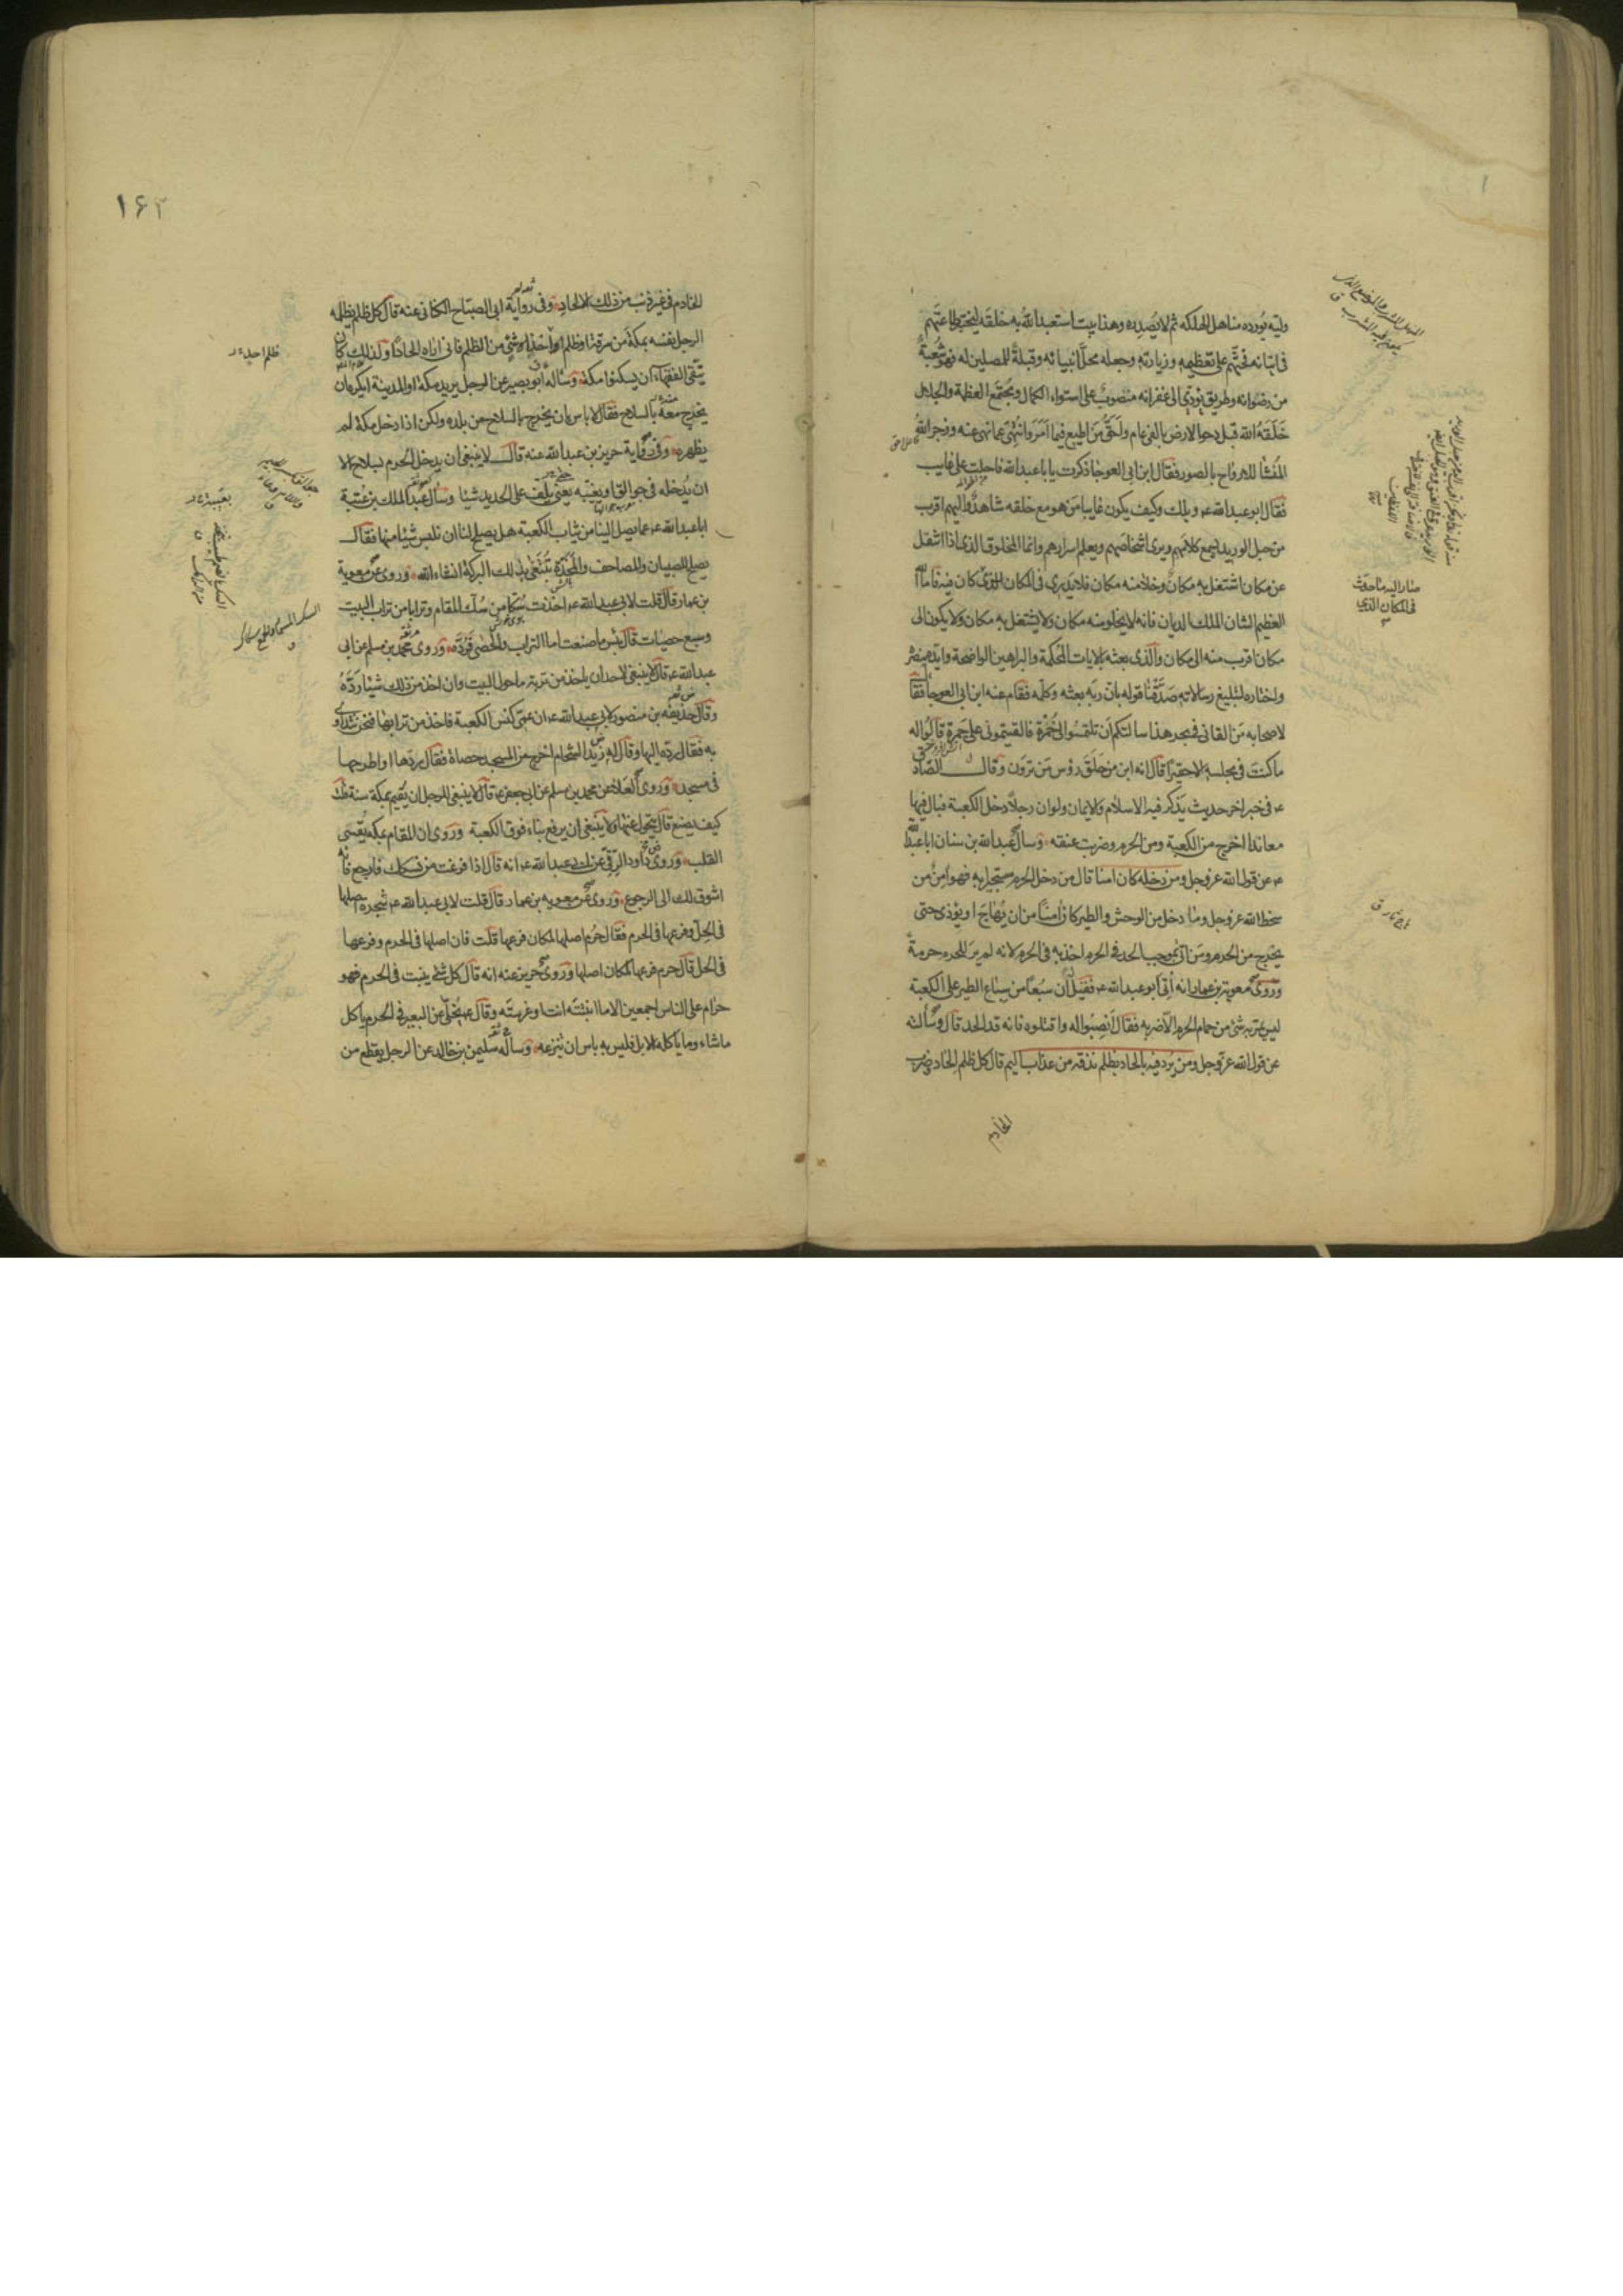 وليه يورده مناهل الهلكه ثم لا يصدره وهذا بيت استعبد الله به خلقه ليختبر طاعتهم
في اتيانه فحثهم على تعظيمه وزيارته وجعله محل انبيائه وقبلة للمصلين له فهو شعبة
من رضوانه وطريق يؤدي الى غفرانه منصوب على استواء الكمال ومجتمع العظمة والجلال
خلقه الله قبل دحو الارض بالفي عام واحق من اطيع فيما امر وانتهى عما نهى عنه وزجر الله
المنشا للارواح بالصور فقال ابن ابي العوجا ذكرت يا باعبد الله فاحلت على غايب
فقال ابوعبد الله ع ويلك وكيف يكون غايبا من هو مع خلقه شاهد واليهم اقرب
من حبل الوريد يسمع كلامهم ويرى اشخاصهم ويعلم اسرارهم وانما المخلوق الذي اذا انتقل
عن مكان اشتغل به مكان وخلا منه مكان فلا يدري في المكان الذي كان فيه فاما الله
العظيم الشان الملك الديان فانه لا يخلو منه مكان ولا يشتغل به مكان ولا يكون الى
مكان اقرب منه الى مكان والذي بعثه بالايات المحكمة والبراهين الواضحة وايده بنصره
واختاره لتبليغ رسالاته صدقنا قوله بان ربه بعثه وكلمه فقام عنه ابن ابي العوجا فقال
لاصحابه من القاني في بحر هذا سالتكم ان تلتمسوا لي خمرة فالقيتموني على جمرة قالوا له
ما كنت في مجلسه الا حقيرا قال انه ابن من حلق رؤس من ترون وقال الصادق
ع في خبر اخر حديث يذكر فيه الاسلام والايمان ولو ان رجلا دخل الكعبة فبال فيها
معاندا اخرج من الكعبة ومن الحرم وضربت عنقه وسال عبد الله بن سنان اباعبد الله
ع عن قول الله عز وجل ومن دخله كان امنا قال من دخل الحرم مستجيرا به فهو امن من
سخط الله عز وجل وما دخل من الوحش والطير كان امنا من ان يهاج او يؤذى حتى
يخرج من الحرم ومن اتى بموجب الحد في الحرم اخذ به في الحرم لانه لم ير للحرم حرمة
وروى معوية بن عمار انه اتى ابوعبد الله ع فقيل ان سبعا من سباع الطير على الكعبة
ليس يمر به شئ من حمام الحرم الا ضربه فقال انصبوا له واقتلوه فانه قد الحد قال وسألته
عن قول الله عز وجل ومن يرد فيه بالحاد بظلم نذقه من عذاب اليم قال كل ظلم الحاد وضرب
الخادم
صار اليه ما حدث
في المكان الذي
١۶٢
الخادم في غير ذنب من ذلك الالحاد وفي رواية ابي الصباح الكناني عنه قال كل ظلم يظلمه
الرجل نفسه بمكة من سرقة او ظلم احد او شئ من الظلم فاني اراه الحادا ولذلك كان
يتقى الفقهاء ان يسكنوا مكة وساله ابو بصير عن الرجل يريد مكة او المدينة ايكره ان
يخرج معه بالسلاح فقال لا باس بان يخرج بالسلاح من بلده ولكن اذا دخل مكة لم
يظهره وفي رواية حريز بن عبد الله عنه قال لا ينبغي ان يدخل الحرم بسلاح الا
ان يدخله في جوالق او يغيبه يعني يلف على الحديد شيئا وسأل عبد الملك بن عتبة
اباعبد الله ع عما يصل الينا من ثياب الكعبة هل يصلح لنا ان نلبس شيئا منها فقال
يصلح للصبيان وللمصاحف والمخدة تبتغي بذلك البركة انشاء الله وروى عن معوية
بن عمار قال قلت لابي عبد الله ع اخذت سكا من سك المقام وترابا من تراب البيت
وسبع حصيات قال بئس ما صنعت اما التراب والحصى فرده وروى محمد بن مسلم عن ابي
عبد الله ع قال لا ينبغي لاحد ان ياخذ من تربة ما حول البيت وان اخذ من ذلك شيئا رده
وقال حذيفه بن منصور لابي عبد الله ع ان عمي كنس الكعبة فاخذ من ترابها فنحن نتداوى
به فقال رده اليها وقال له زيد الشحام اخرج من المسجد حصاة فقال ردها او اطرحها
في مسجد وروى العلا عن محمد بن مسلم عن ابي جعفر ع قال لا ينبغي للرجل ان يقيم بمكة سنة قلت
كيف يصنع قال يتحول عنها ولا ينبغي ان يرفع بناء فوق الكعبة وروى ان المقام بمكة يقسى
القلب وروى داود الرقي عن ابي عبد الله ع انه قال اذا فرغت من نسكك فارجع فانه
اشوق لك الى الرجوع وروى عن معويه بن عمار قال قلت لابي عبد الله ع شجرة اصلها
في الحل وفرعها في الحرم فقال حرم اصلها لمكان فرعها قلت فان اصلها في الحرم وفرعها
في الحل قال حرم فرعها لمكان اصلها وروى حريز عنه انه قال كل شئ ينبت في الحرم فهو
حرام على الناس اجمعين الا ما انبتته انت او غرسته وقال ع يخلى عن البعير في الحرم ياكل
ما شاء وما ياكله الابل فليس به باس ان ينزعه وساله سليمن بن خالد عن الرجل يقطع من